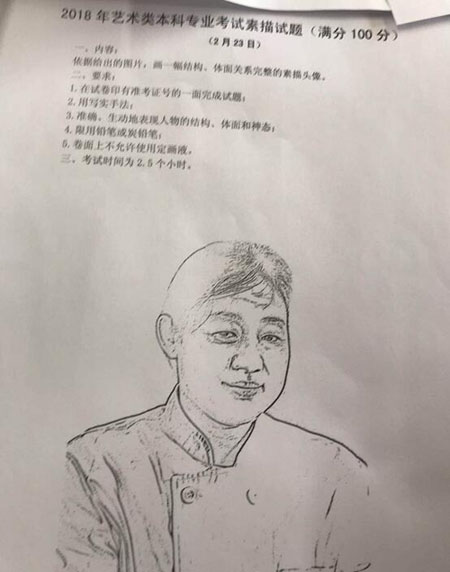 2018年艺术类本科专业考试素描试题（满分100分）
（2月23日）
一、内容：
依据给出的图片，画一幅结构、体面关系完整的素描头像。
二、要求：
1.在试卷印有准考证号的一面完成试题；
2.用写实手法；
3.准确、生动地表现人物的结构、体面和神态；
4.限用铅笔或炭铅笔；
5.卷面上不允许使用定画液。
三、考试时间为2.5个小时。